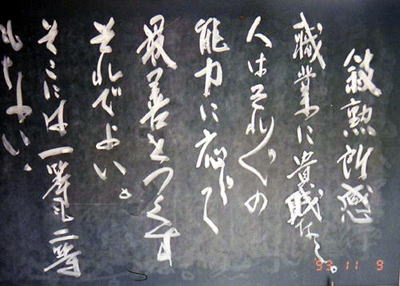 叙勲雑感
職業に貴賤なし。
人はそれ〲の
能力に応じて
最善をつくす
それでよい。
そこには一等も二等
もない、
93 11 9